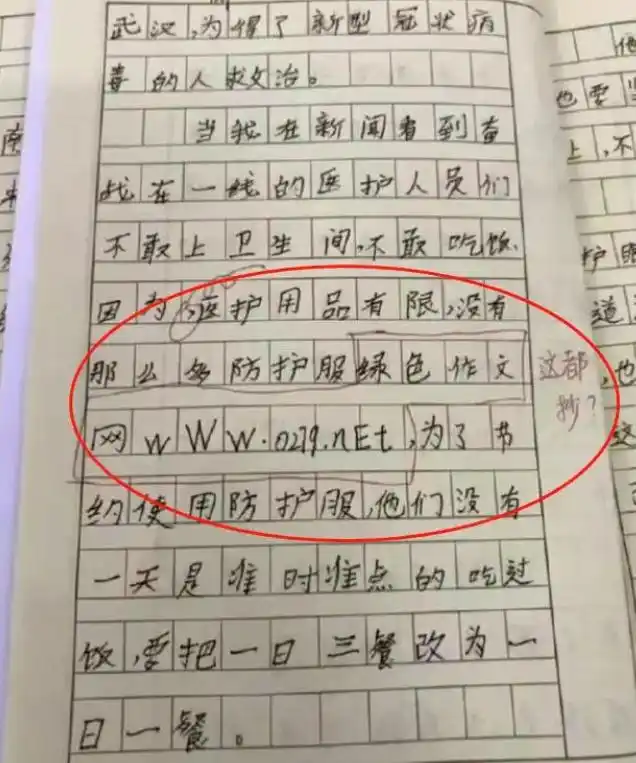 武汉,为得了新型冠状病
毒的人救治。
当我在新闻看到奋
战在一线的医护人员们
不敢上卫生间,不敢吃饭.
因为医护用品有限,没有
那么多防护服绿色作文
网wWw.0279.nEt,为了节
约使用防护服,他们没有
一天是准时准点的吃过
饭,要把一日三餐改为一
日一餐。
这都
抄?
南
他
也要
上,不
护
道
,也
这